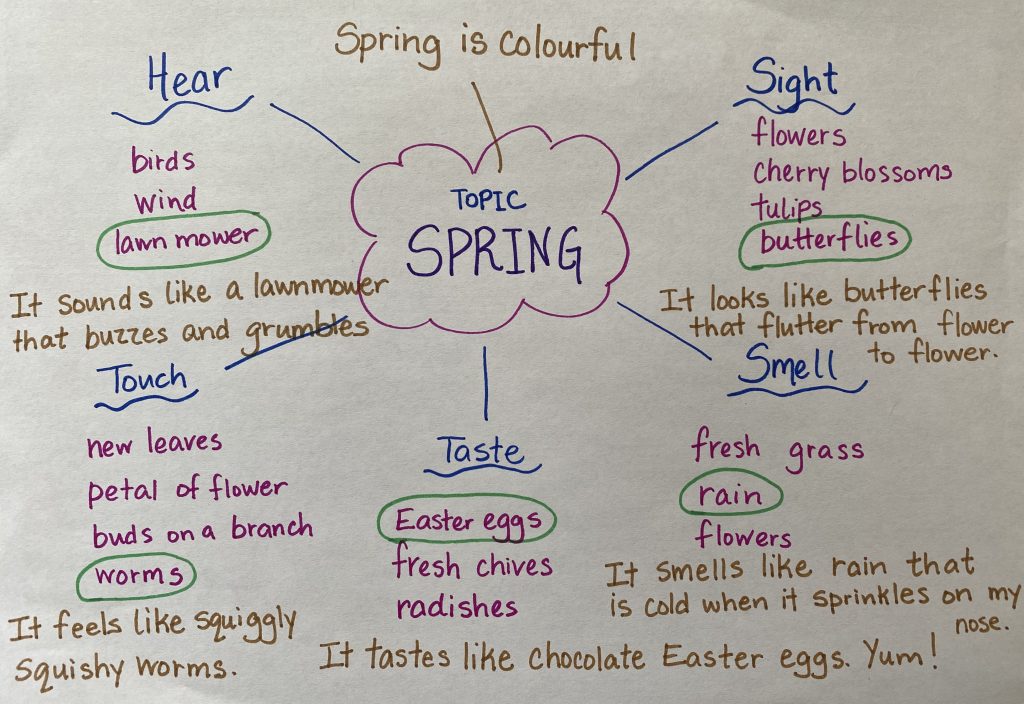 Spring is colourful
TOPIC
SPRING
Hear
birds
wind
lawn mower
It sounds like a lawnmower
that buzzes and grumbles
Sight
flowers
cherry blossoms
tulips
butterflies
It looks like butterflies
that flutter from flower
to flower.
Touch
new leaves
petal of flower
buds on a branch
worms
It feels like squiggly
squishy worms.
Taste
Easter eggs
fresh chives
radishes
It tastes like chocolate Easter eggs. Yum!
Smell
fresh grass
rain
flowers
It smells like rain that
is cold when it sprinkles on my
nose.